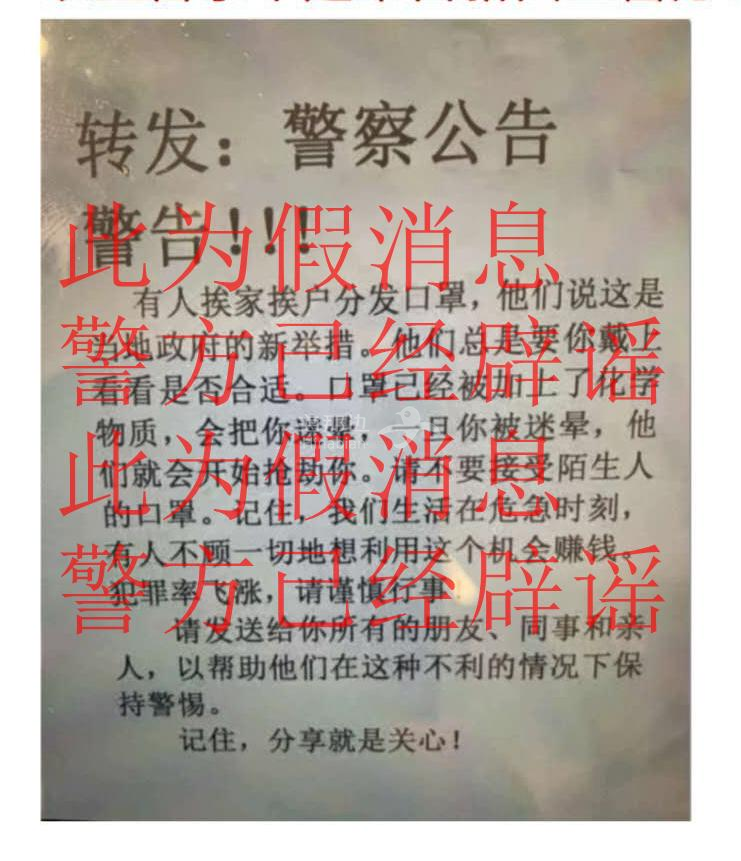 转发：警察公告
警告！！！
有人挨家挨户分发口罩，他们说这是
当地政府的新举措。他们总是要你戴上
看看是否合适。口罩已经被加上了化学
物质，会把你迷晕，一旦你被迷晕，他
们就会开始抢劫你。请不要接受陌生人
的口罩。记住，我们生活在危急时刻，
有人不顾一切地想利用这个机会赚钱。
犯罪率飞涨，请谨慎行事
请发送给你所有的朋友、同事和亲
人，以帮助他们在这种不利的情况下保
持警惕。
记住，分享就是关心！
此为假消息
警方已经辟谣
此为假消息
警方已经辟谣